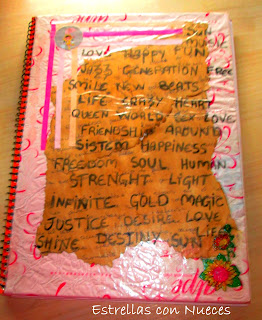 LOVE HAPPY FUN
JAZZ GENERATION FREE
SMILE NEW BEATS
LIFE CRAZY HEART
QUEEN WORLD SEX LOVE
FRIENDSHIP AROUND
SISTEM HAPPINESS
FREEDOM SOUL HUMAN
STRENGHT LIGHT
INFINITE GOLD MAGIC
JUSTICE DESIRE LOVE
LIFE
SHINE DESTINY SUN
Estrellas con Nueces